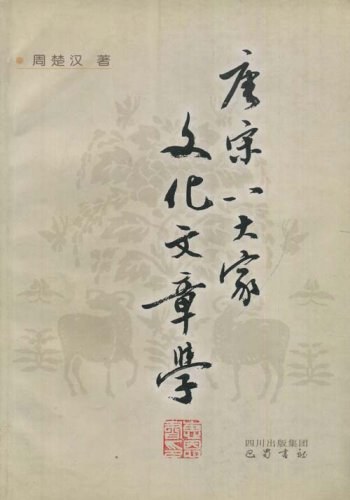 周楚汉 著
唐宋八大家
文化文章学
四川出版集团
巴蜀书社